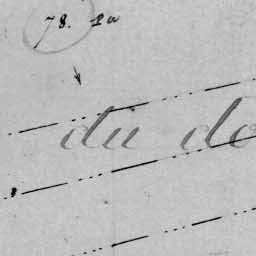 78. 2a
du do